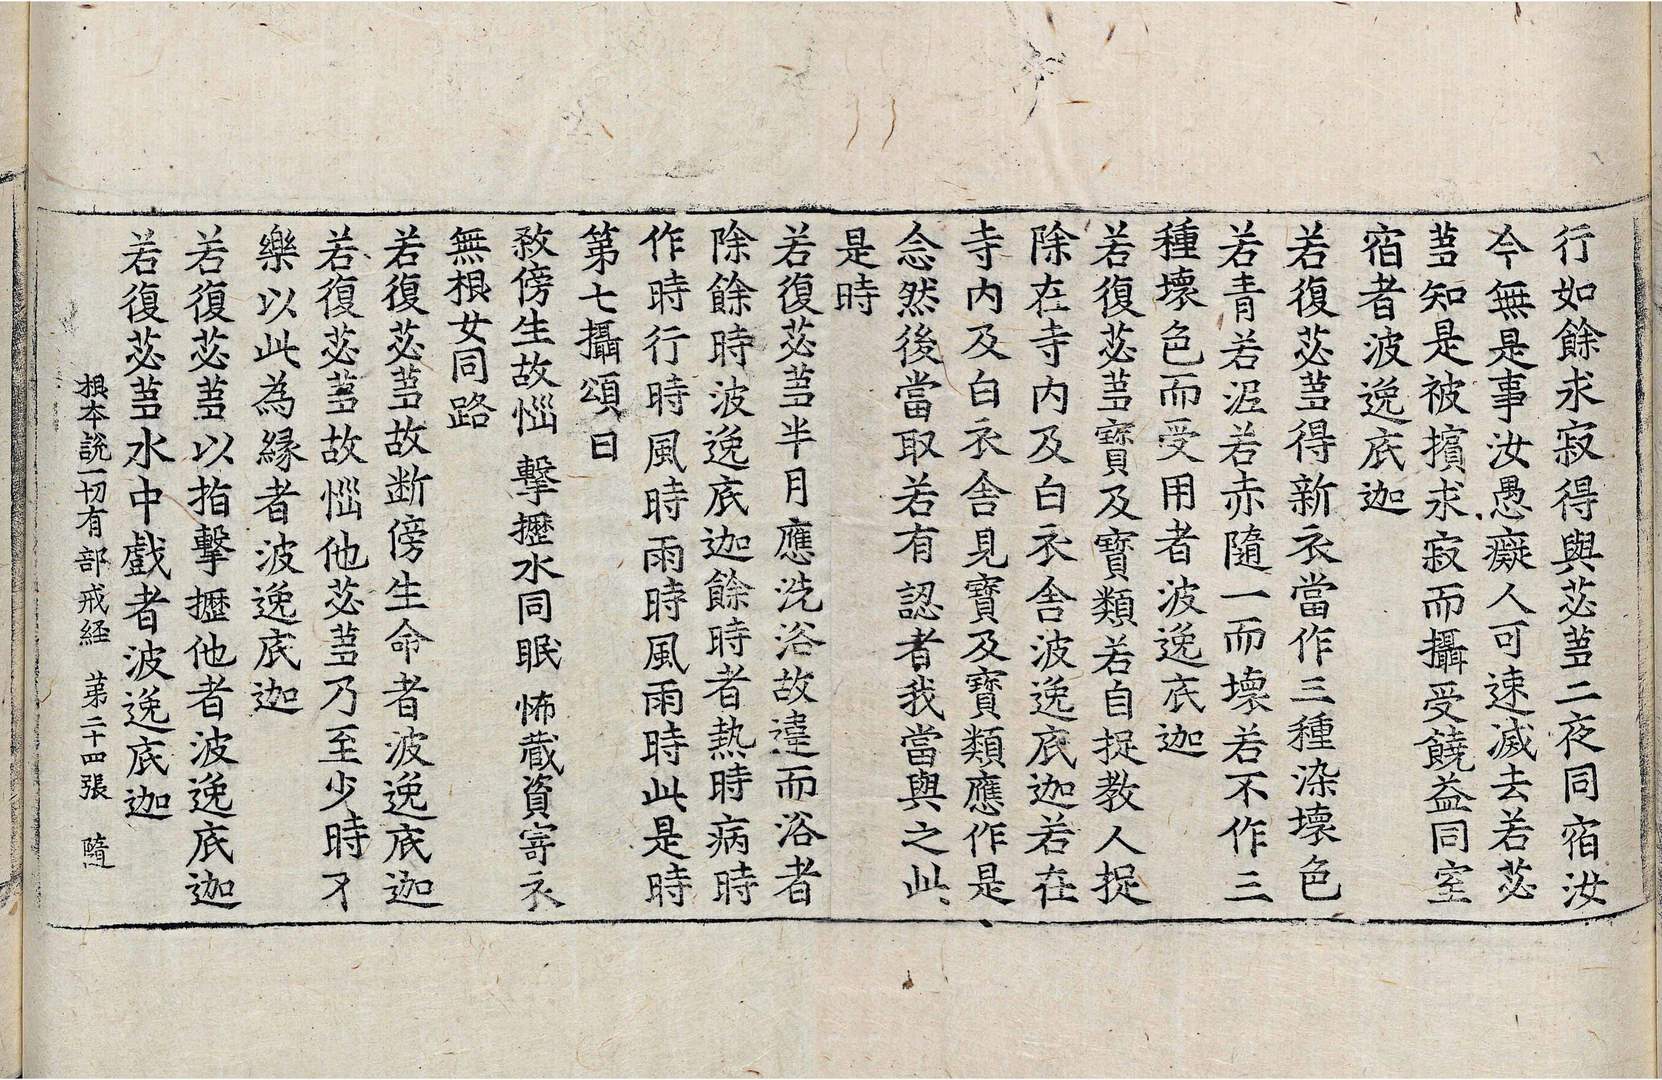 行如餘求寂得與苾蒭二夜同宿汝
今無是事汝愚癡人可速滅去若苾
蒭知是被擯求寂而攝受饒益同室
宿者波逸底迦
若復苾蒭得新衣當作三種染壞色
若青若泥若赤隨一而壞若不作三
種壞色而受用者波逸底迦
若復苾蒭寶及寶類若自捉教人捉
除在寺內及白衣舍波逸底迦若在
寺內及白衣舍見寶及寶類應作是
念然後當取若有認者我當與之此
是時
若復苾蒭半月應洗浴故違而浴者
除餘時波逸底迦餘時者熱時病時
作時行時風時雨時風雨時此是時
第七攝頌曰
敎傍生故惱 擊攊水同眠 怖藏資寄衣
無根女同路
若復苾蒭故断傍生命者波逸底迦
若復苾蒭故惱他苾蒭乃至少時不
樂以此為緣者波逸底迦
若復苾蒭以指擊攊他者波逸底迦
若復苾蒭水中戲者波逸底迦
根本說一切有部戒経 第二十四張 隨